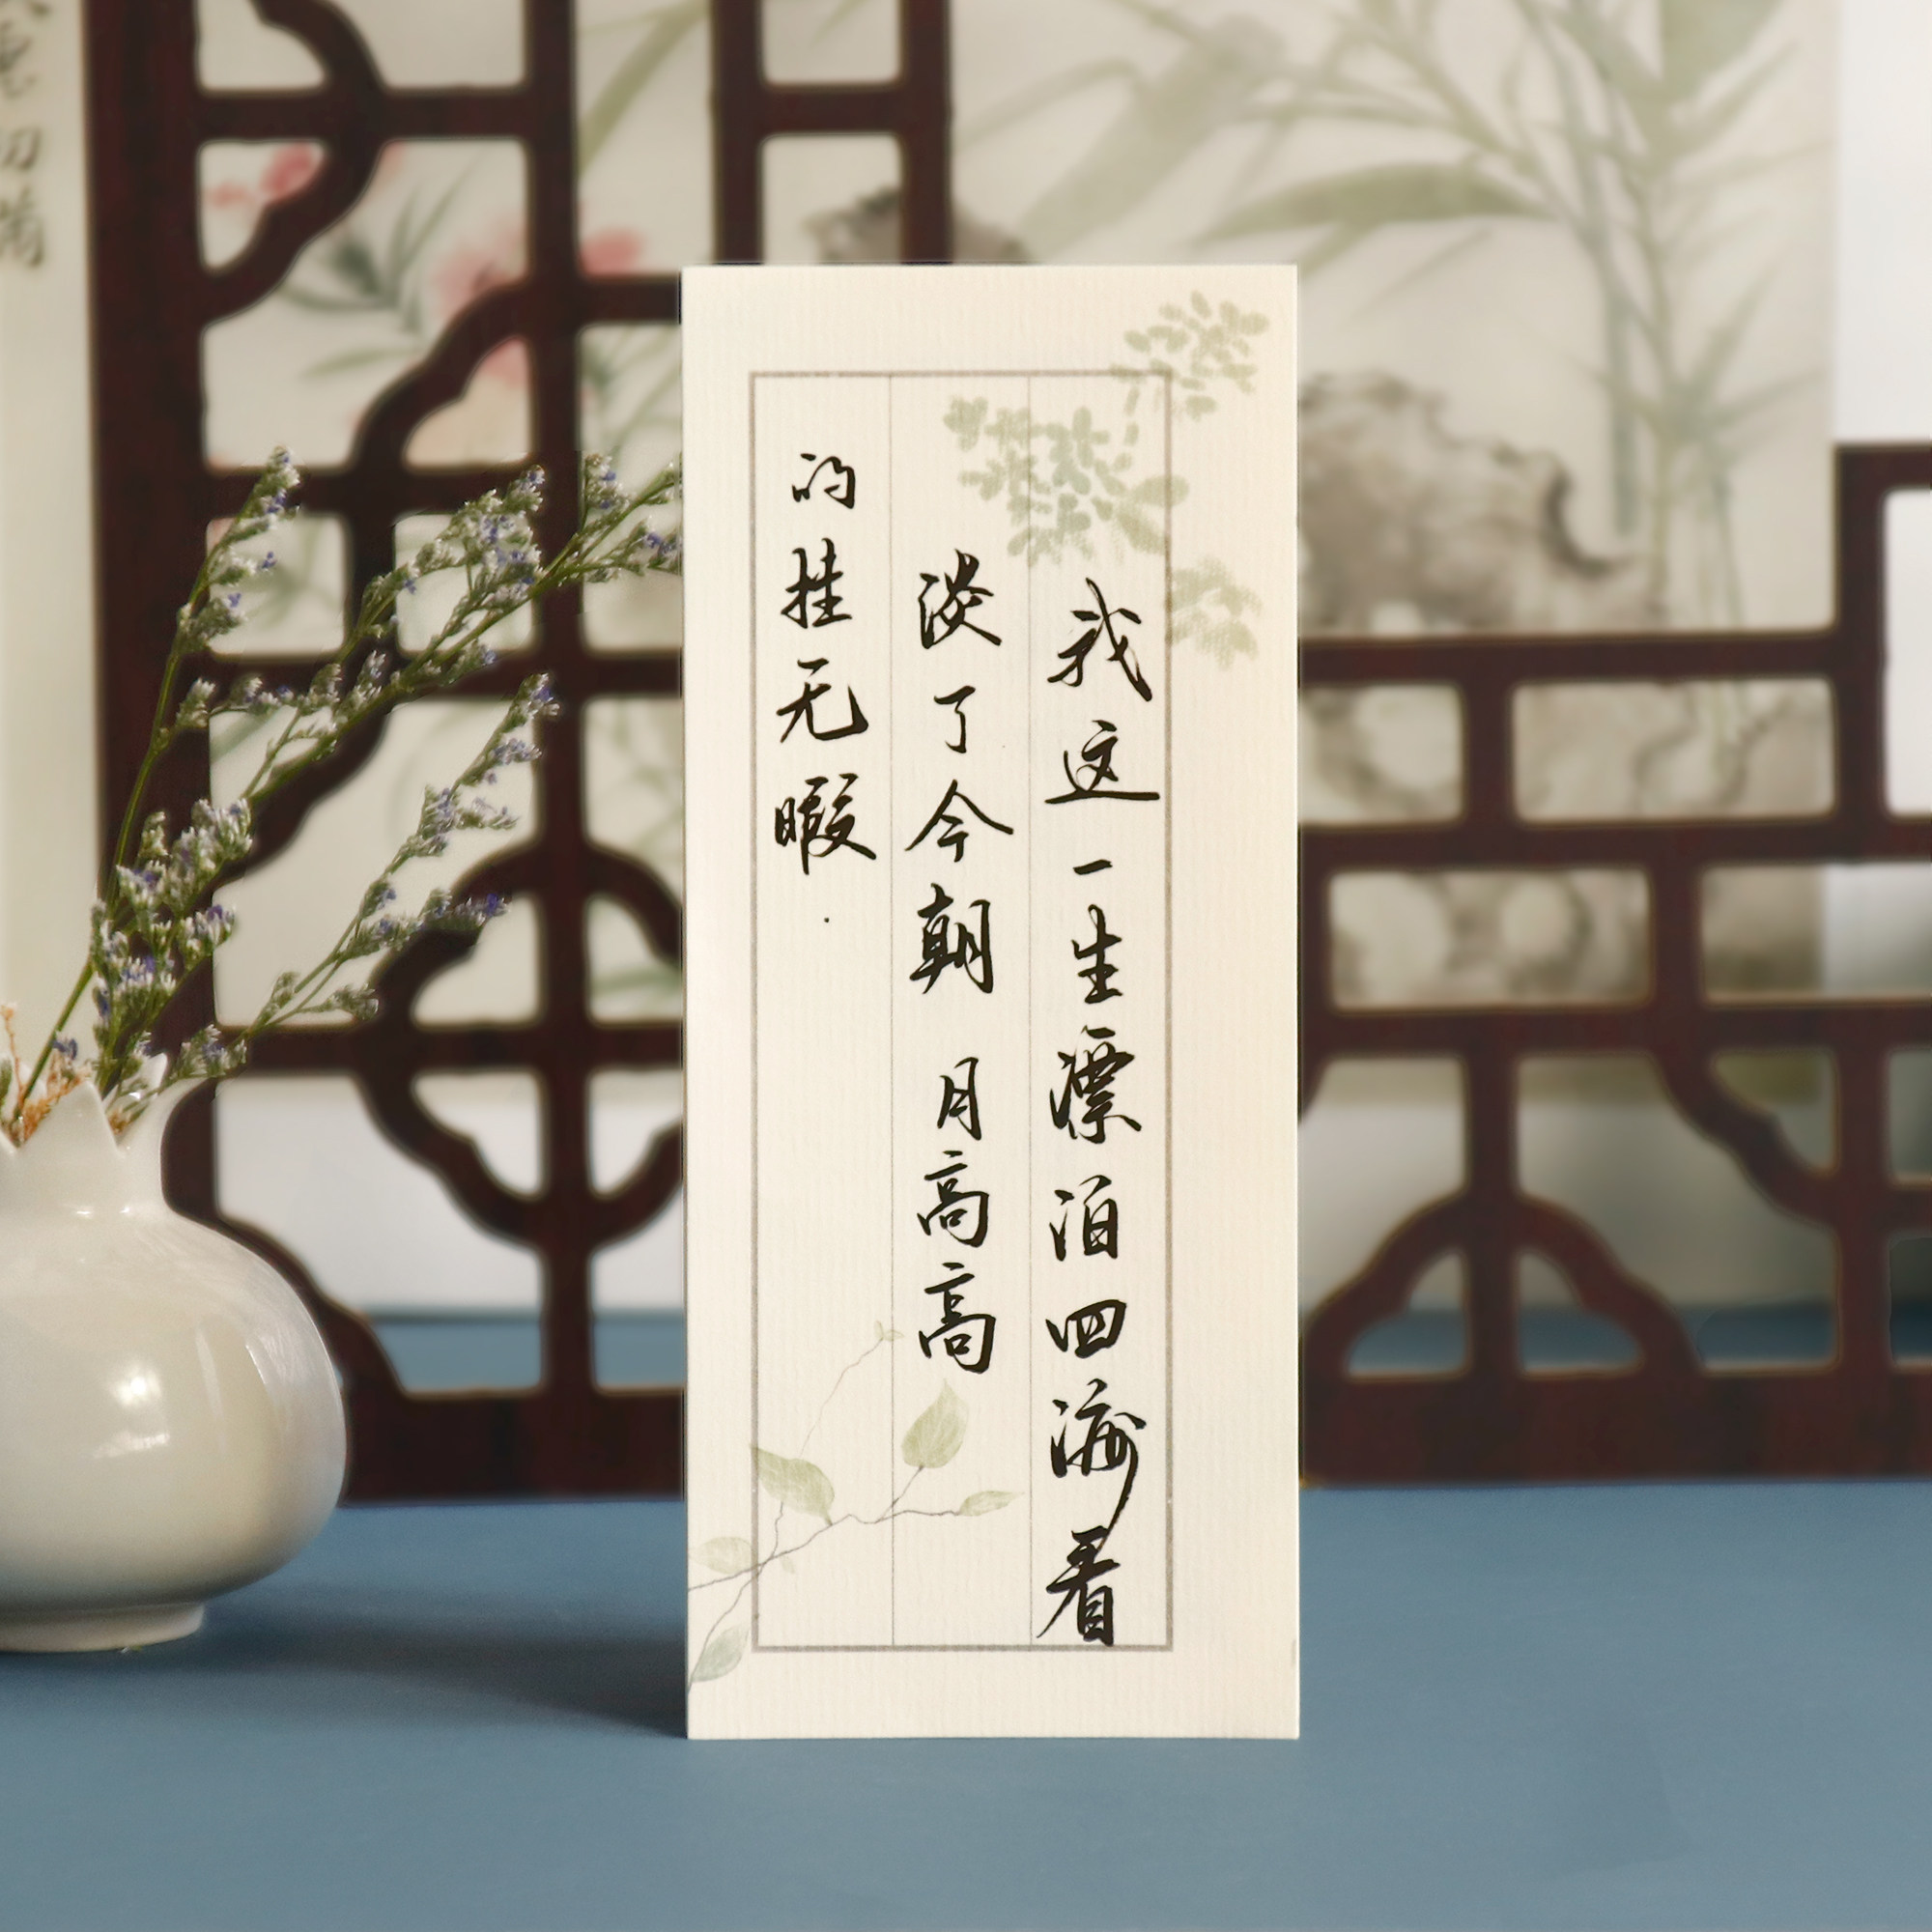 我这一生漂泊四海看
淡了今朝 月高高
的挂无暇.